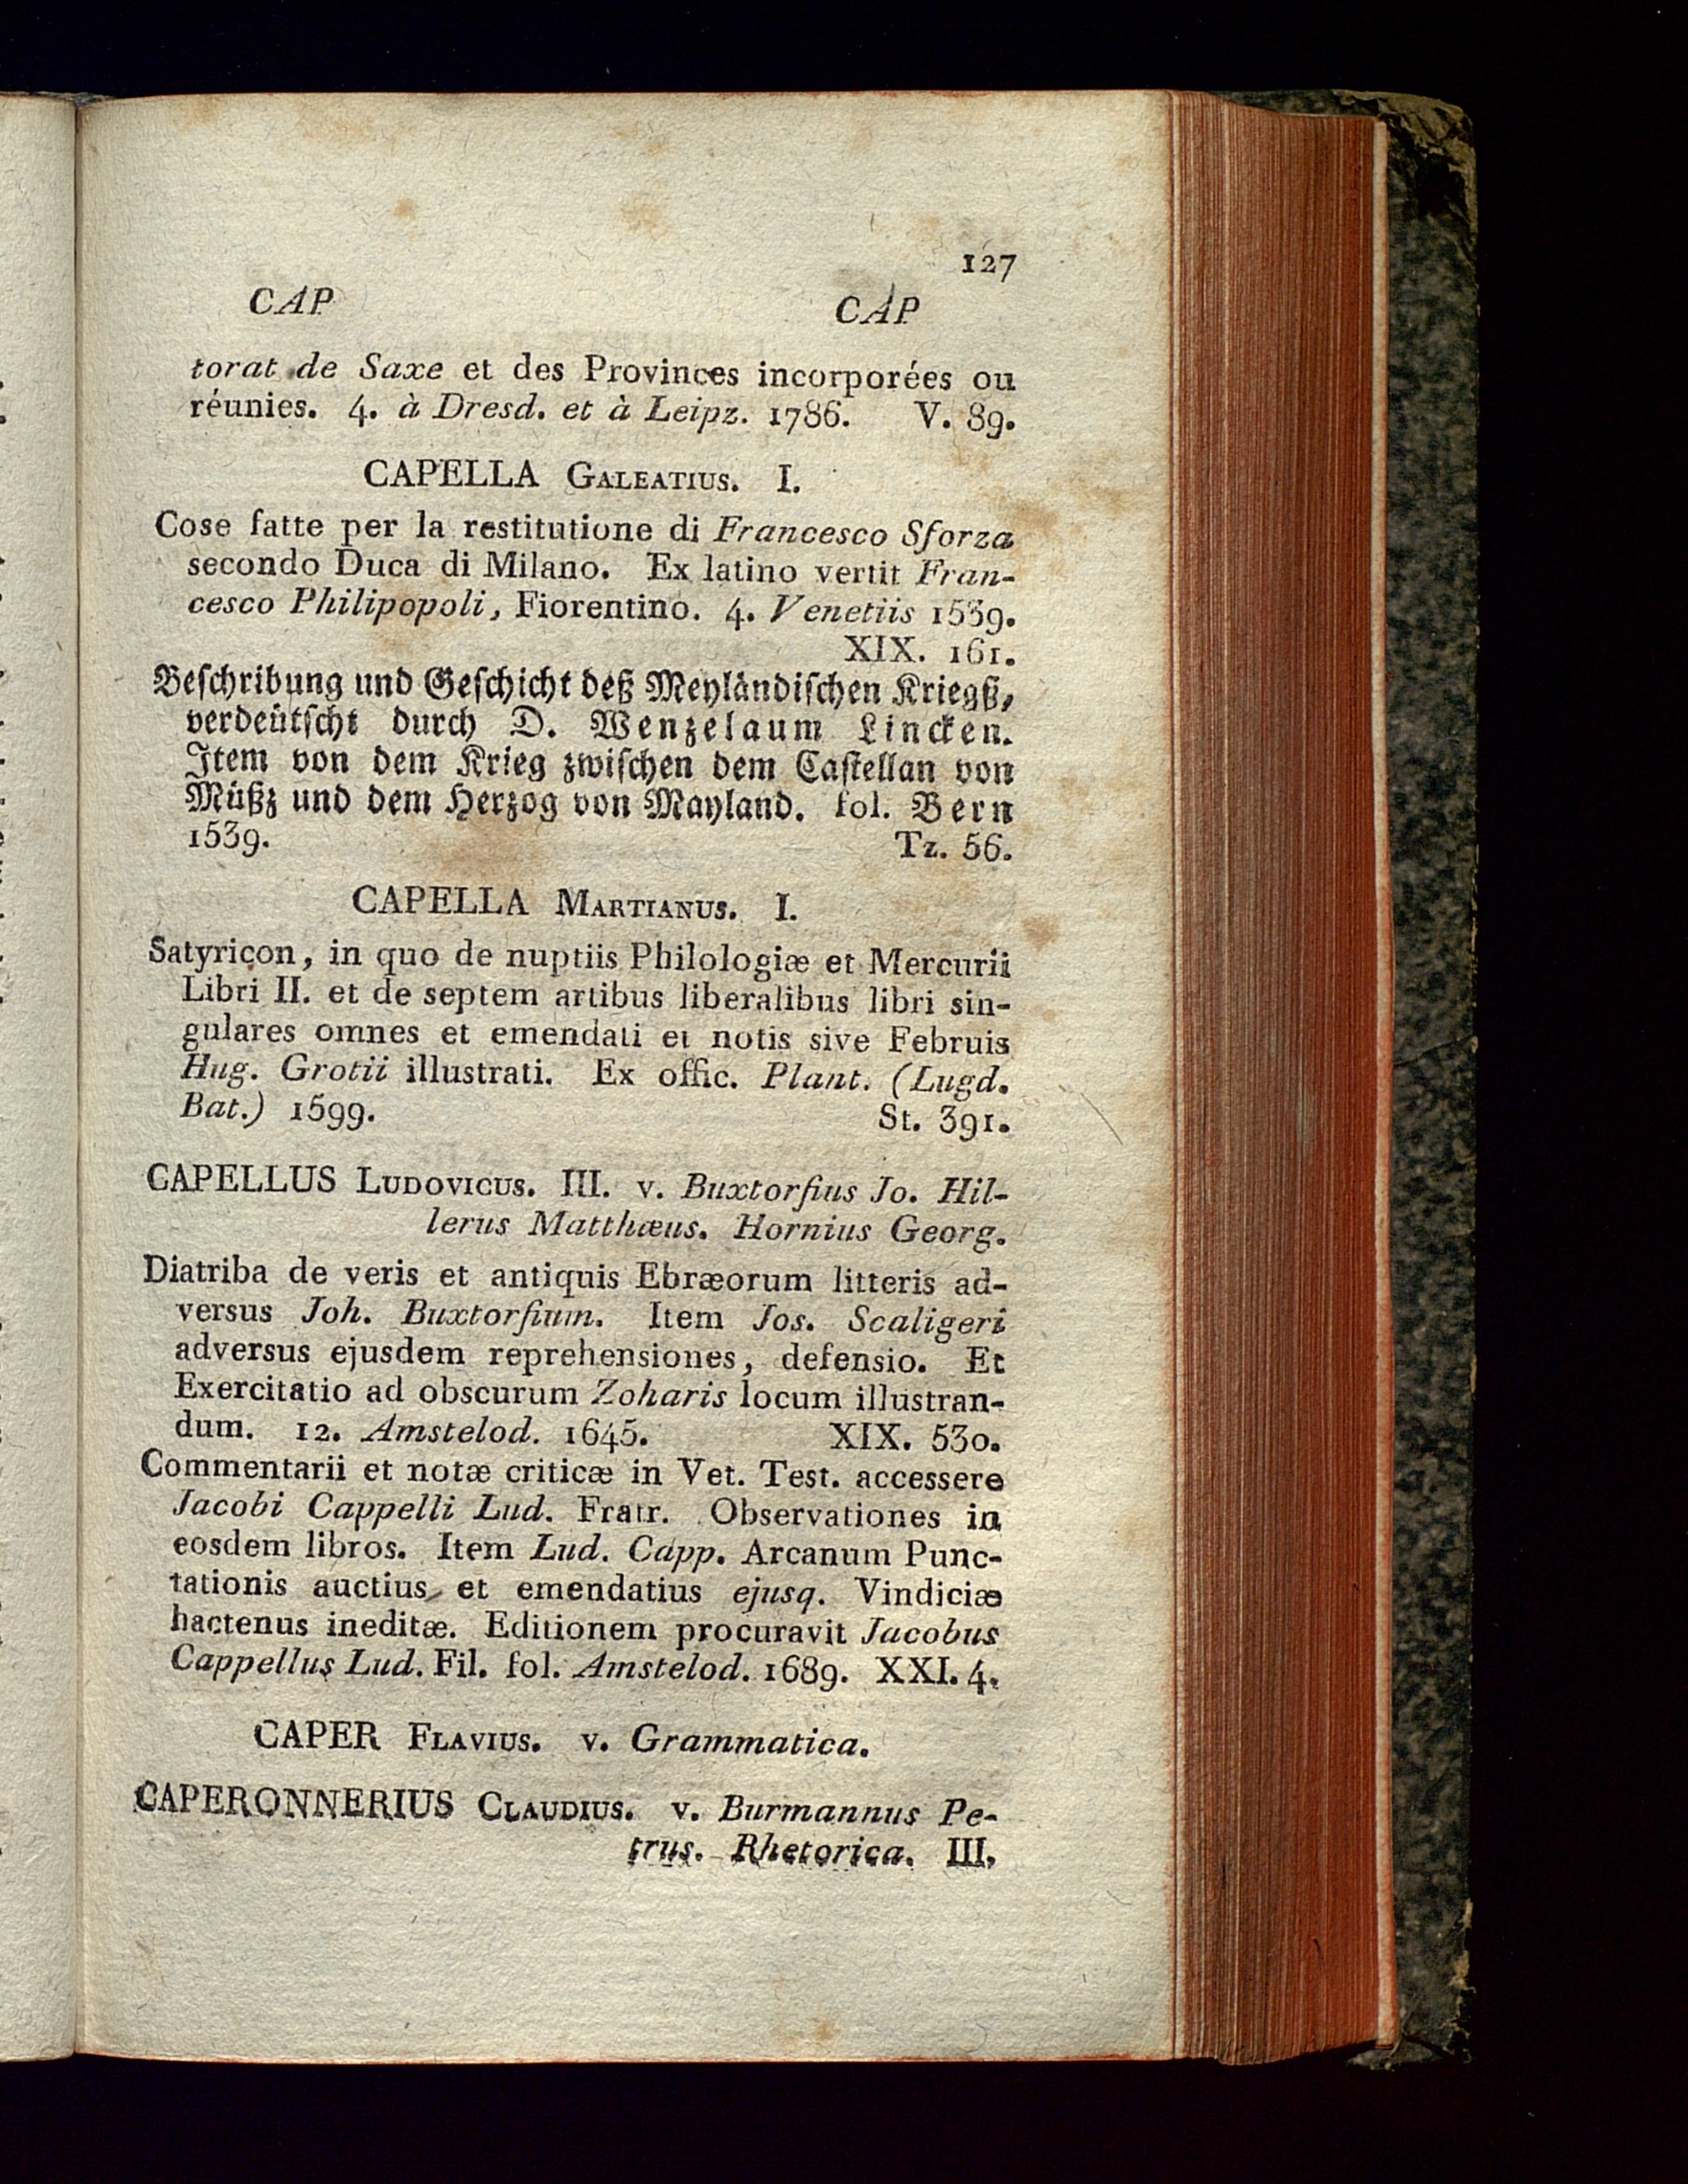 127
CAP CAP
torat de Saxe et des Provinces incorporées ou
réunies. 4. à Dresd. et à Leipz. 1786. V. 89.
CAPELLA GALEATIUS. I.
Cose fatte per la restitutione di Francesco Sforza
secondo Duca di Milano. Ex latino vertit Fran-
cesco Philipopoli, Fiorentino. 4. Venetiis 1539.
XIX. 161.
Beschribung und Geschicht deß Meyländischen Kriegß,
verdeütscht durch D. Wenzelaum Lincken.
Item von dem Krieg zwischen dem Castellan von
Müßz und dem Herzog von Mayland. fol. Bern
1539. Tz. 56.
CAPELLA MARTIANUS. I.
Satyricon, in quo de nuptiis Philologiæ et Mercurii
Libri II. et de septem artibus liberalibus libri sin-
gulares omnes et emendati et notis sive Februis
Hug. Grotii illustrati. Ex offic. Plant. (Lugd.
Bat.) 1599. St. 391.
CAPELLUS LUDOVICUS. III. v. Buxtorfius Jo. Hil-
lerus Matthæus. Hornius Georg.
Diatriba de veris et antiquis Ebræorum litteris ad-
versus Joh. Buxtorfium. Item Jos. Scaligeri
adversus ejusdem reprehensiones, defensio. Et
Exercitatio ad obscurum Zoharis locum illustran-
dum. 12. Amstelod. 1645. XIX. 530.
Commentarii et notæ criticæ in Vet. Test. accessere
Jacobi Cappelli Lud. Fratr. Observationes in
eosdem libros. Item Lud. Capp. Arcanum Punc-
tationis auctius et emendatius ejusq. Vindiciæ
hactenus ineditæ. Editionem procuravit Jacobus
Cappellus Lud. Fil. fol. Amstelod. 1689. XXI. 4.
CAPER FLAVIUS. v. Grammatica.
CAPERONNERIUS CLAUDIUS. v. Burmannus Pe-
trus. Rhetorica. III.